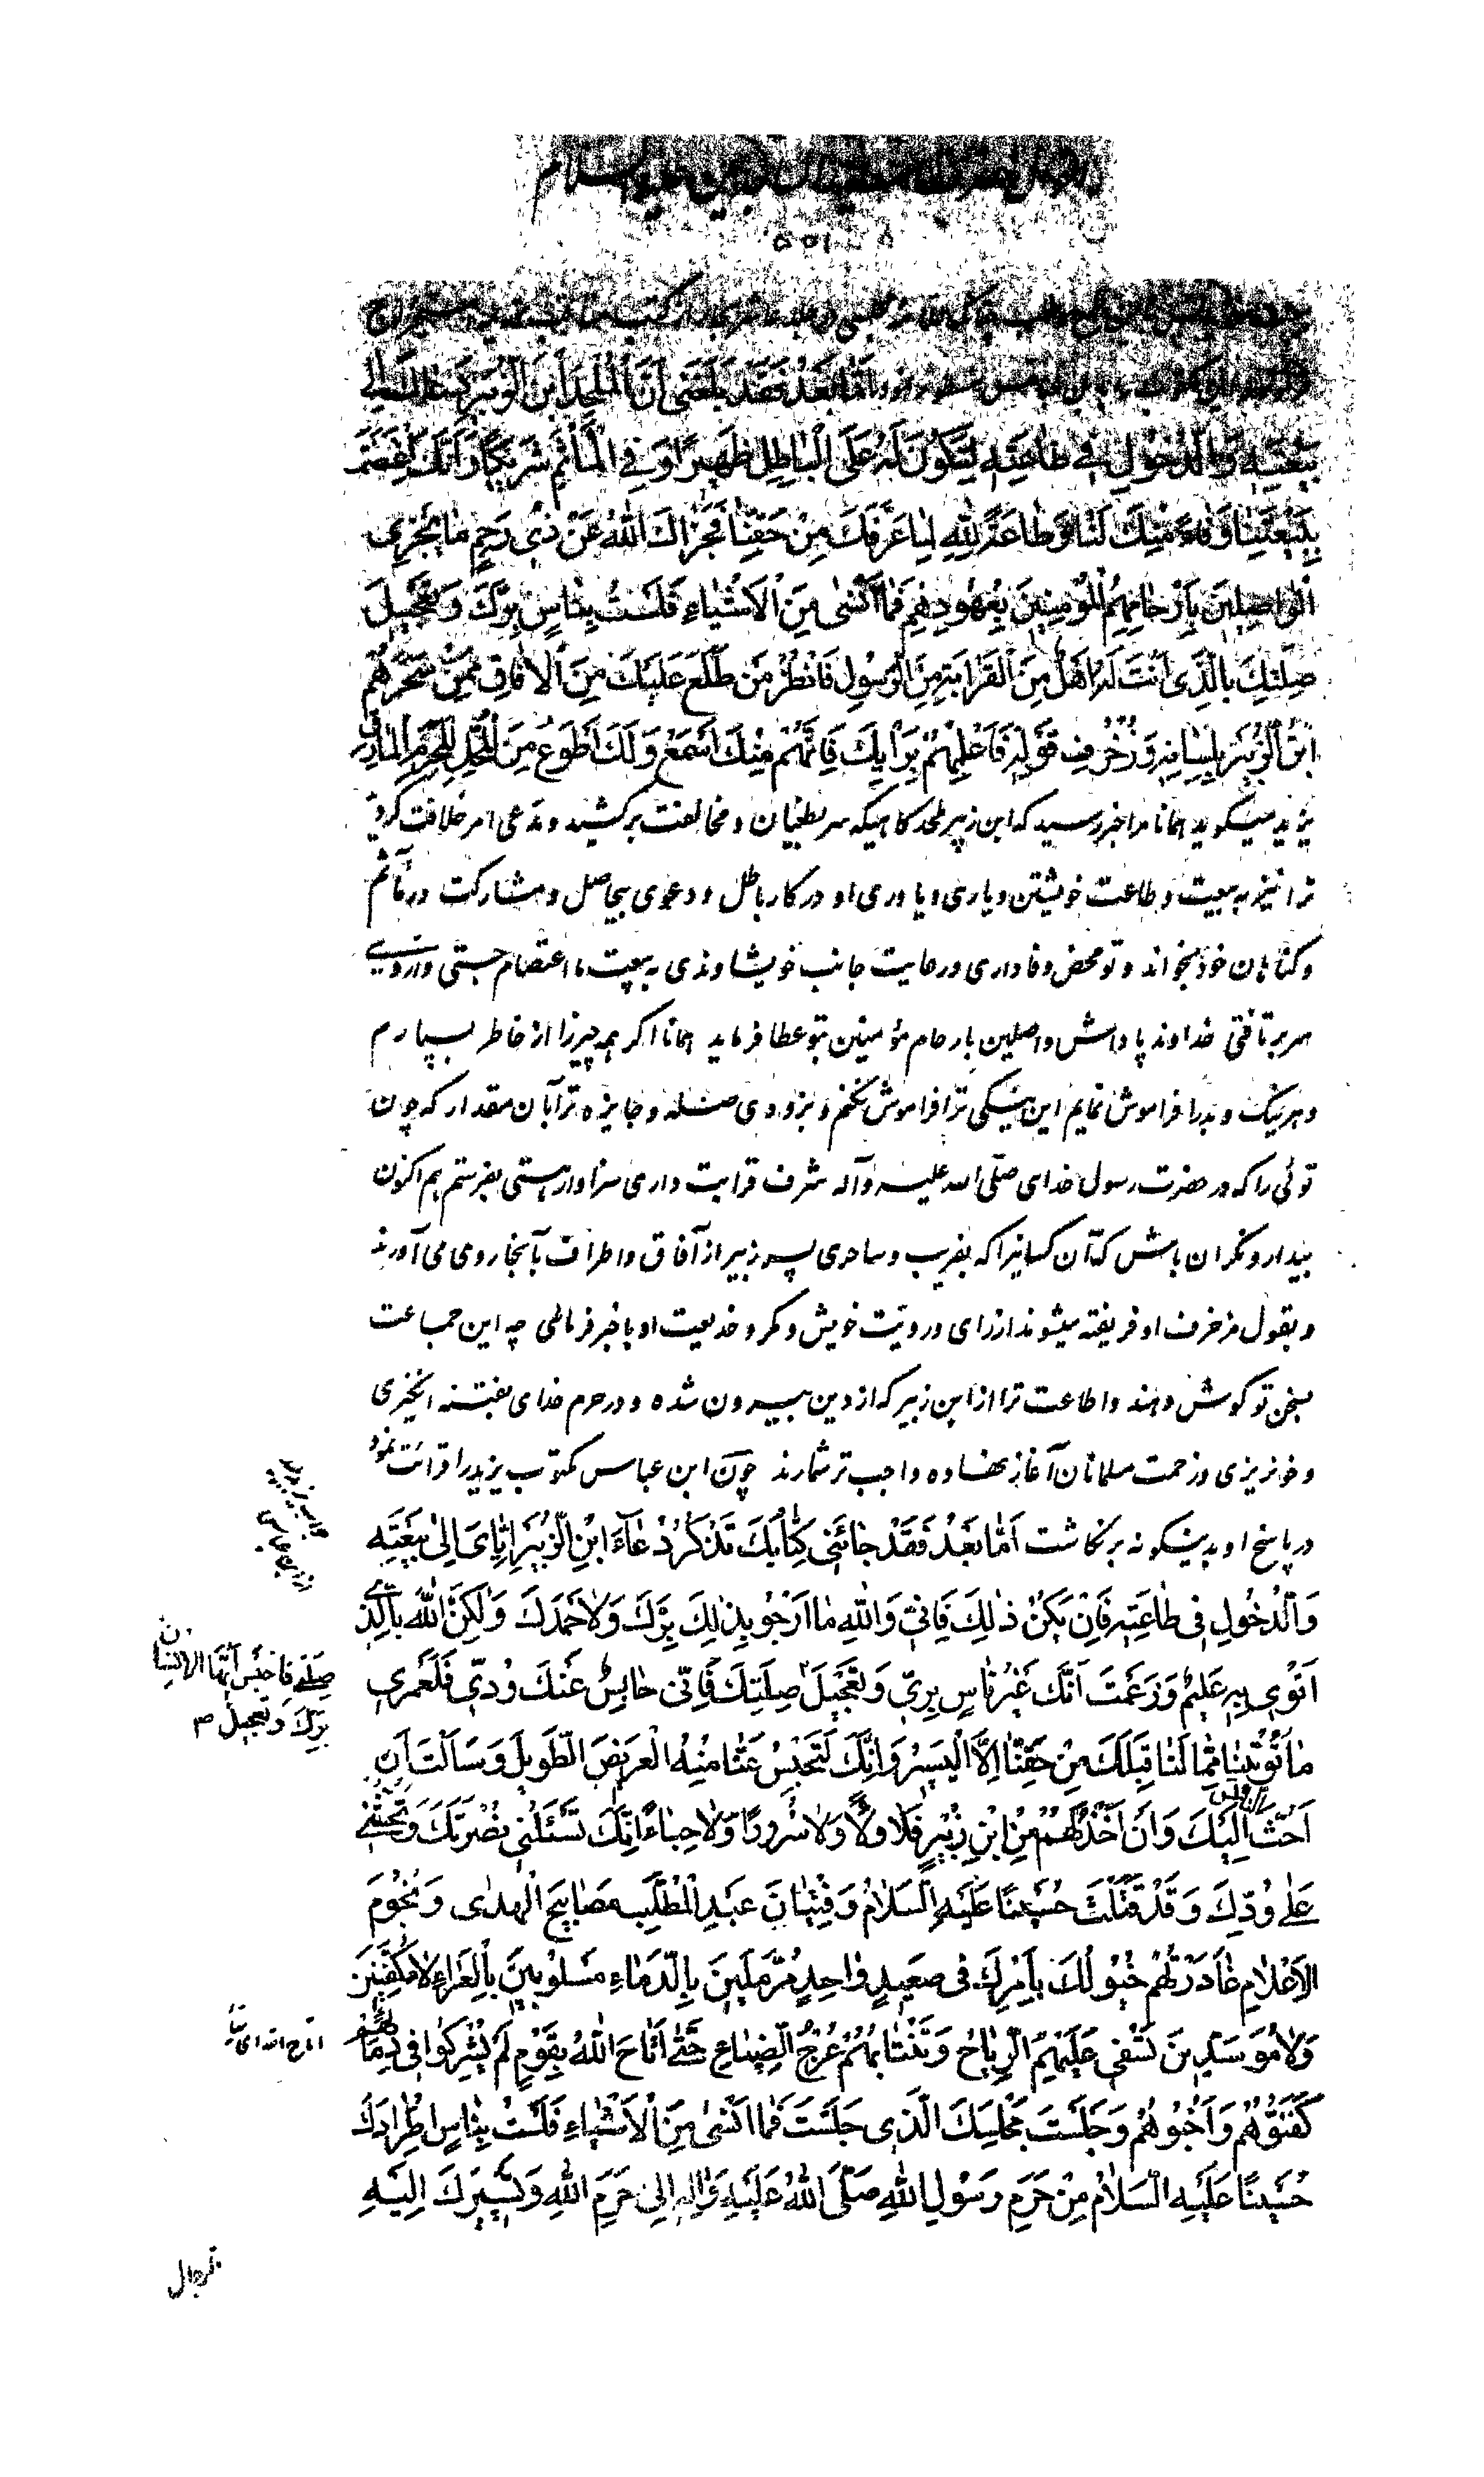 علیه السلام
۵۵۱
اَمّا بَعْدُ فَقَدْ بَلَغَنی اَنَّ الْمُلْحِدَ ابْنَ الزُّبَیْرِ دَعاکَ اِلی
بَیْعَتِهِ وَالدُّخُولِ فی طاعَتِهِ لِتَکُونَ لَهُ عَلَی الْباطِلِ ظَهیرًا وَفِی الْمَأْثَمِ شَریکًا وَاَنَّکَ اعْتَصَمْتَ
بِبَیْعَتِنا وَفاءً مِنْکَ لَنا وَطاعَةً لِلّهِ لِما عَرَّفَکَ مِنْ حَقِّنا فَجَزاکَ اللّهُ عَنْ ذی رَحِمٍ ما یَجْزِی
الْواصِلینَ بِاَرْحامِهِمُ الْمُؤْمِنینَ بِعُهُودِهِمْ فَما اَنْسی مِنَ الْاَشْیاءِ فَلَسْتُ بِناسٍ بِرَّکَ وَتَعْجیلَ
صِلَتِکَ بِالَّذی اَنْتَ لَهُ اَهْلٌ مِنَ الْقَرابَةِ مِنَ الرَّسُولِ فَانْظُرْ مَنْ طَلَعَ عَلَیْکَ مِنَ الْافاقِ مِمَّنْ سَحَرَهُمُ
ابْنُ الزُّبَیْرِ بِلِسانِهِ وَزُخْرُفِ قَوْلِهِ فَاَعْلِمْهُمْ بِرَاْیِکَ فَاِنَّهُمْ مِنْکَ اَسْمَعُ وَلَکَ اَطْوَعُ مِنَ الْمُحِلِّ لِلْحَرَمِ الْمارِقِ
یزید میگوید همانا مرا خبر رسید که ابن زبیر ملحد کاهیکه سر بطغیان و مخالفت برکشید و مدعی امر خلافت گردید
ترا نیز به بیعت و طاعت خویشتن و یاری و یاوری او در کار باطل و دعوی بیحاصل و مشارکت در مآثم
و گناهان خود بخواند و تو محض وفاداری و رعایت جانب خویشاوندی به بیعت ما اعتصام جستی و از وی
سر برتافتی خداوند پاداش واصلین بارحام مؤمنین بتو عطا فرماید همانا اگر همه چیز را از خاطر بسپارم
و هر نیک و بد را فراموش نمایم این نیکی ترا فراموش نکنم و بزودی صله و جایزه ترا بآن مقدار که چون
توئی را که در حضرت رسول خدای صلی الله علیه وآله شرف قرابت داری سزاوار هستی بفرستم هم اکنون
بیدار و نگران باش که آن کسانیرا که بفریب و ساحری پسر زبیر از آفاق و اطراف بآنجا روی می آورند
و بقول مزخرف او فریفته میشوند از رای و رویّت خویش و مکر و خدیعت او باخبر فرمائی چه این جماعت
بسخن تو گوش دهند و اطاعت ترا از ابن زبیر که از دین بیرون شده و در حرم خدای بفتنه انگیزی
و خونریزی و زحمت مسلمانان آغاز نهاده واجب تر شمارند چون ابن عباس مکتوب یزید را قرائت نمود
در پاسخ او بدینگونه برنگاشت اَمّا بَعْدُ فَقَدْ جائَنی کِتابُکَ تَذْکُرُ دُعآءَ ابْنِ الزُّبَیْرِ اِیّایَ اِلی بَیْعَتِهِ
وَالدُّخُولِ فی طاعَتِهِ فَاِنْ یَکُنْ ذلِکَ فَاِنّی وَاللّهِ ما اَرْجُو بِذلِکَ بِرَّکَ وَلا حَمْدَکَ وَلکِنَّ اللّهَ بِالَّذی
اَنْوی بِهِ عَلیمٌ وَزَعَمْتَ اَنَّکَ غَیْرُ ناسٍ بِرّی وَتَعْجیلَ صِلَتِکَ فَاِنّی حابِسٌ عَنْکَ وُدّی فَلَعَمْری
صِلَتی فَاحْبِسْ اَیُّهَا الْاِنْسانُ
بِرَّکَ وَتَعْجیلَ م
ما تُؤْتینا مِمّا لَنا قِبَلَکَ مِنْ حَقِّنا اِلاَّ الْیَسیرَ وَاِنَّکَ لَتَحْبِسُ عَنّا مِنْهُ الْعَریضَ الطَّویلَ وَسَاَلْتَ اَنْ
اَحُثَّ اِلَیْکَ وَاَنْ اَخْذُلَهُمْ مِنِ ابْنِ زُبَیْرٍ فَلا وَلاءً وَلا سُرُورًا وَلا حِباءً اِنَّکَ تَسْئَلُنی نُصْرَتَکَ وَتَحُثُّنی
عَلی وُدِّکَ وَقَدْ قَتَلْتَ حُسَیْنًا عَلَیْهِ السَّلامُ وَفِتْیانَ عَبْدِ الْمُطَّلِبِ مَصابیحَ الْهُدی وَنُجُومَ
الْاَعْلامِ غادَرْتَهُمْ خُیُولُکَ بِاَمْرِکَ فی صَعیدٍ واحِدٍ مُرَمَّلینَ بِالدِّماءِ مَسْلُوبینَ بِالْعَراءِ لا مُکَفَّنینَ
وَلا مُوَسَّدینَ تَسْفی عَلَیْهِمُ الرِّیاحُ وَتَنْتابُهُمْ عُرْجُ الضِّباعِ حَتّی اَتاحَ اللّهُ بِقَوْمٍ لَمْ یُشْرِکُوا فی دِمائِهِمْ
کَفَّنُوهُمْ وَاَجَنُّوهُمْ وَجَلَسْتَ مَجْلِسَکَ الَّذی جَلَسْتَ فَما اَنْسی مِنَ الْاَشْیاءِ فَلَسْتُ بِناسٍ اطِّرادَکَ
حُسَیْنًا عَلَیْهِ السَّلامُ مِنْ حَرَمِ رَسُولِ اللّهِ صَلَّی اللّهُ عَلَیْهِ وَالِهِ اِلی حَرَمِ اللّهِ وَتَسْییرَکَ اِلَیْهِ